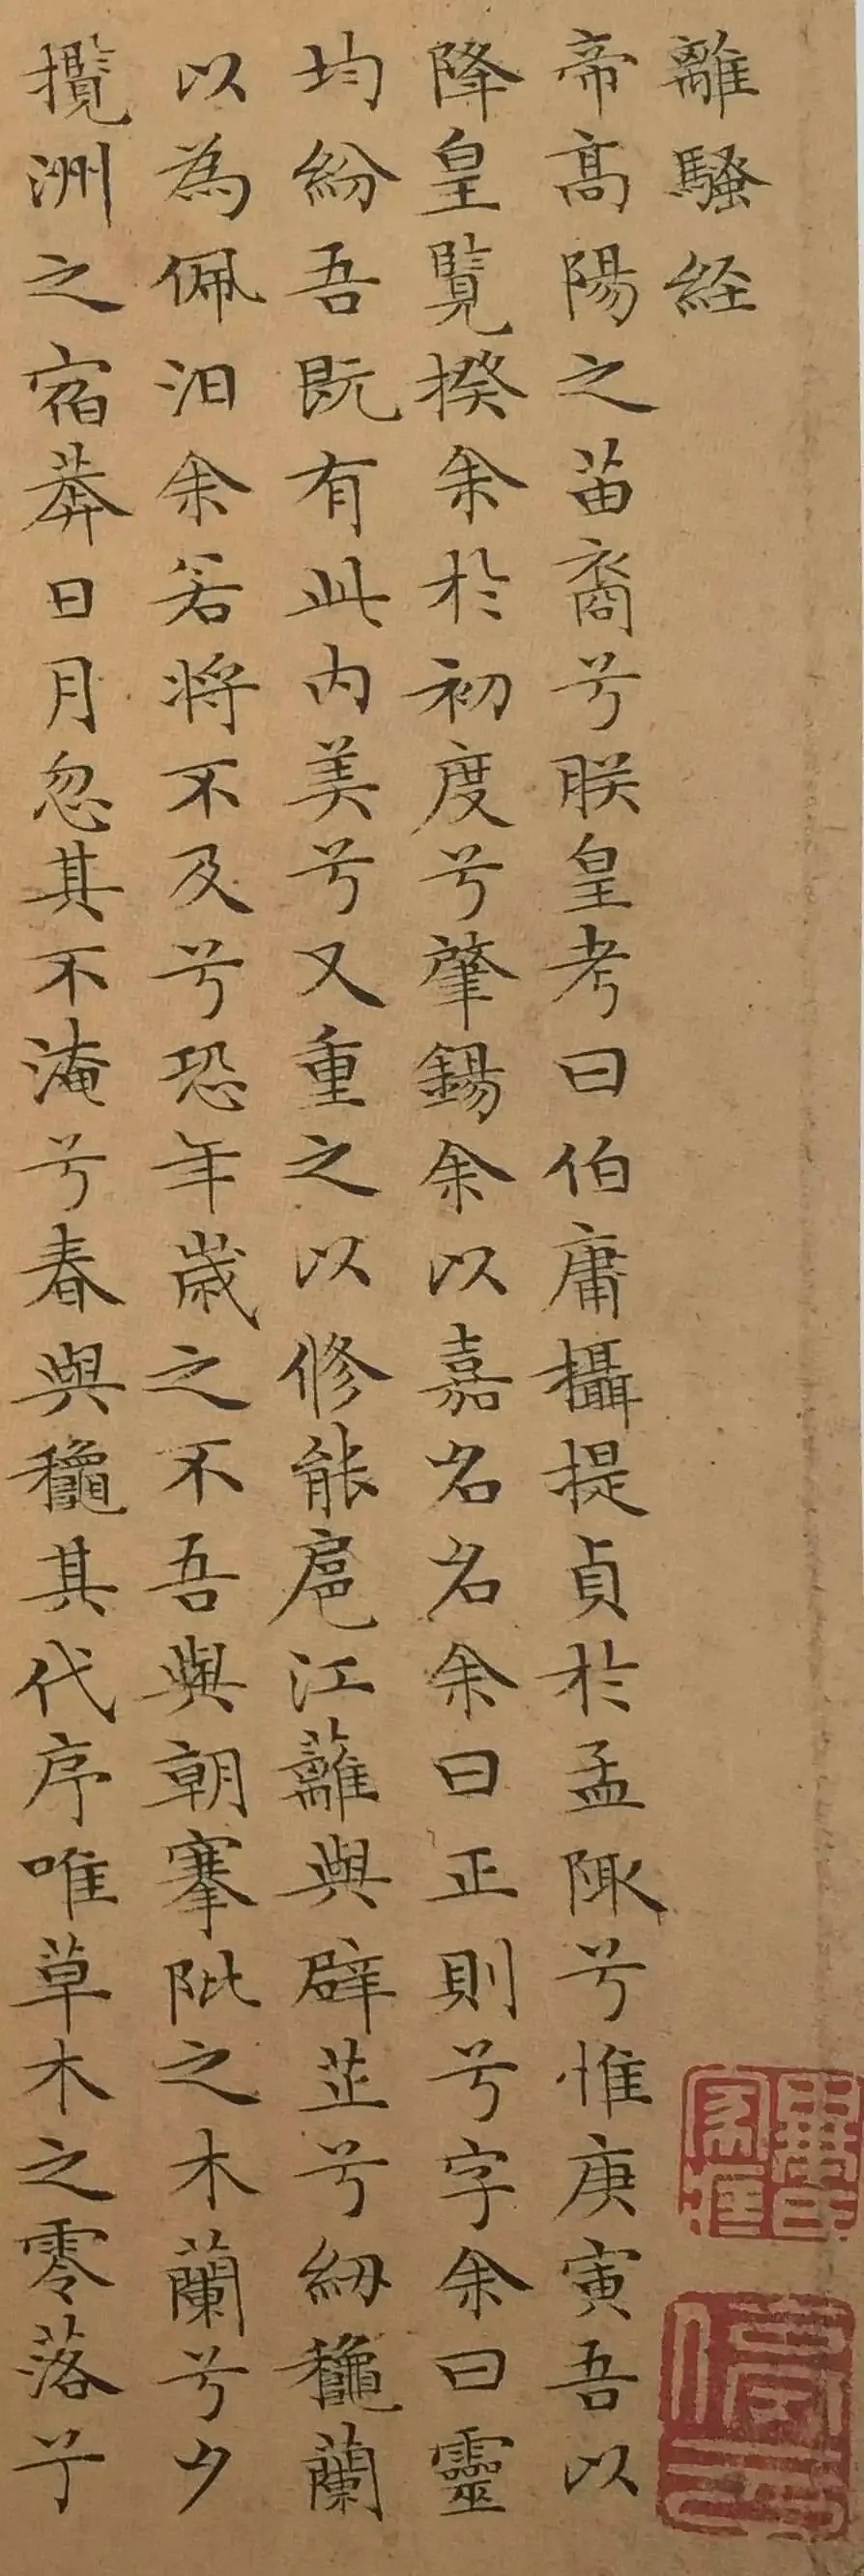 離騷経
帝髙陽之苗裔兮朕皇考曰伯庸攝提貞於孟陬兮惟庚寅吾以
降皇覽揆余於初度兮肇錫余以嘉名名余曰正則兮字余曰靈
均紛吾既有此内美兮又重之以修能扈江蘺與辟芷兮紉穐蘭
以為佩汩余若將不及兮恐年歲之不吾與朝搴阰之木蘭兮夕
攬洲之宿莽日月忽其不淹兮春與穐其代序唯草木之零落兮